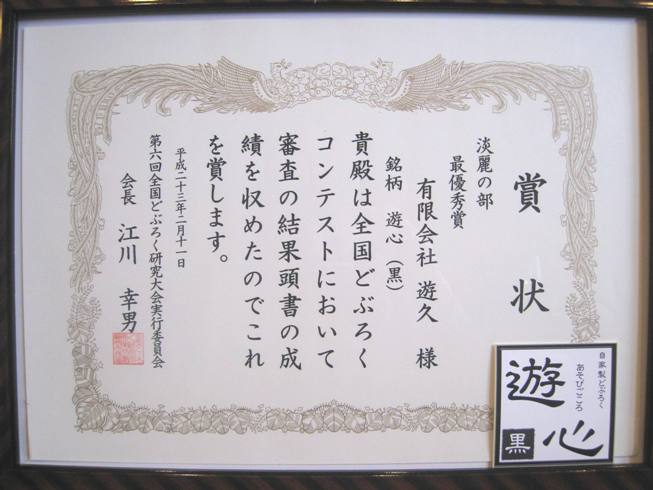 賞状
淡麗の部
最優秀賞
有限会社 遊久 様
銘柄 遊心（黒）
貴殿は全国どぶろく
コンテストにおいて
審査の結果頭書の成
績を収めたのでこれ
を賞します。
平成二十三年二月十一日
第六回全国どぶろく研究大会実行委員会
会長 江川 幸男
自家製どぶろく
あそびごころ
遊心
黒